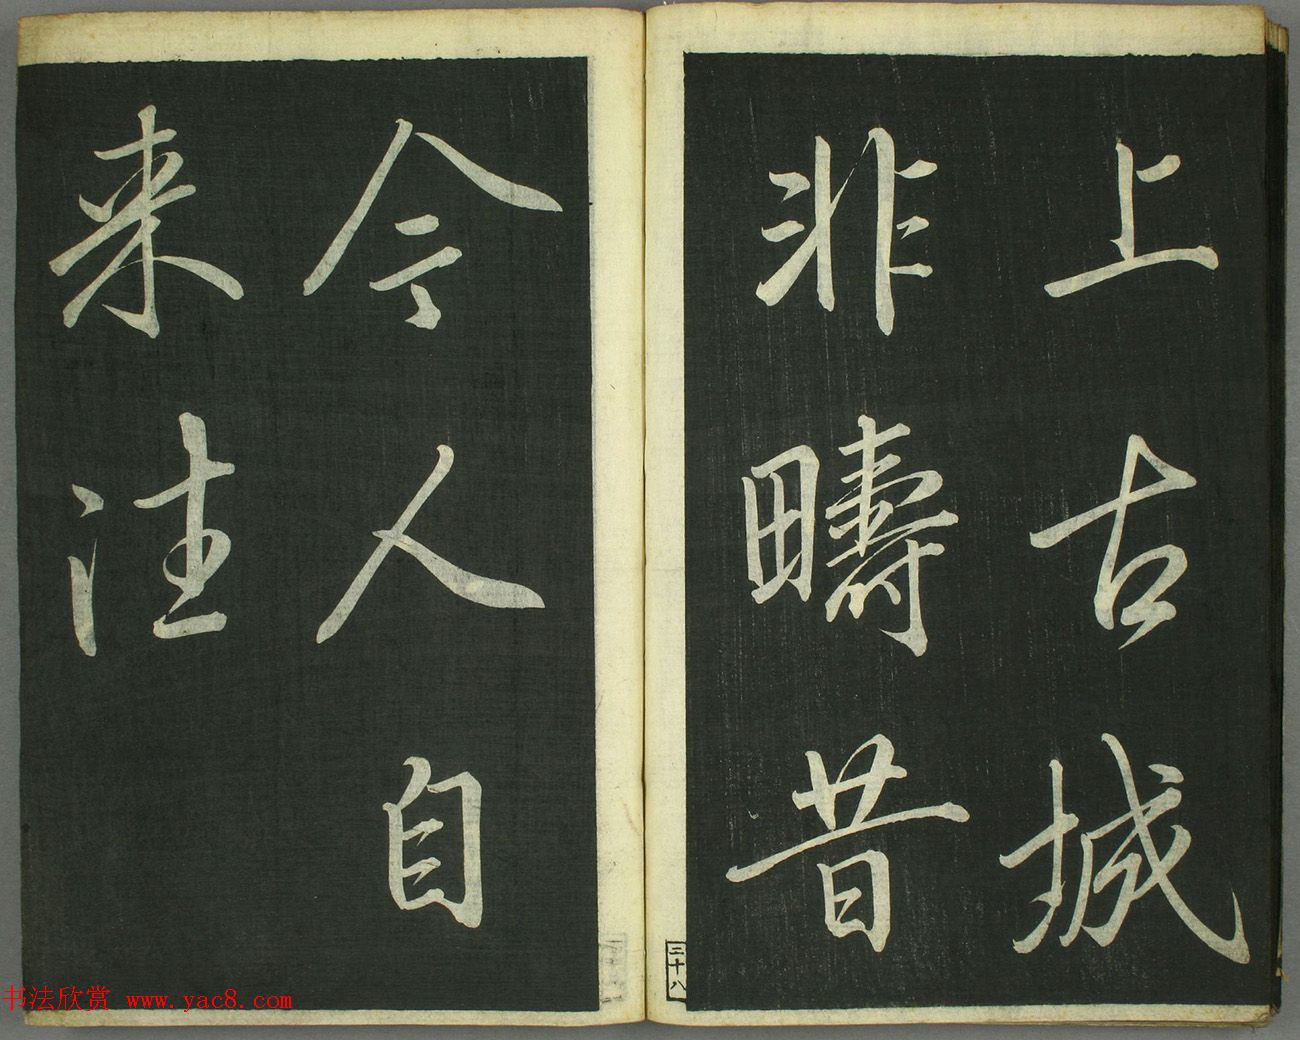 上古城
非疇昔
今人自
来往
三十八
书法欣赏 www.yac8.com